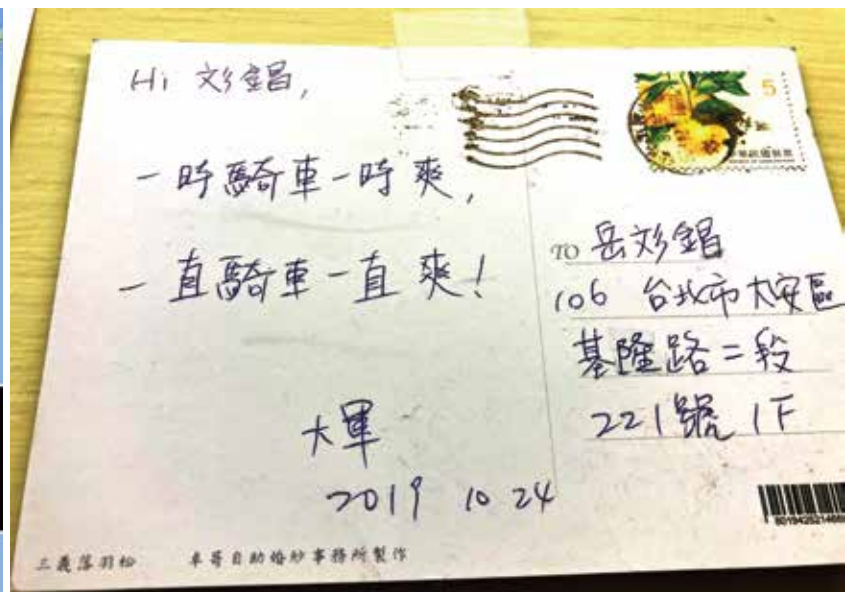 Hi 彣錩,
一時騎車一時爽,
一直騎車一直爽!
大軍
2019 10 24
5
TO 岳彣錩
106 台北市大安區
基隆路二段
221號 1F
三義落羽松 卓哥自助婚紗事務所製作